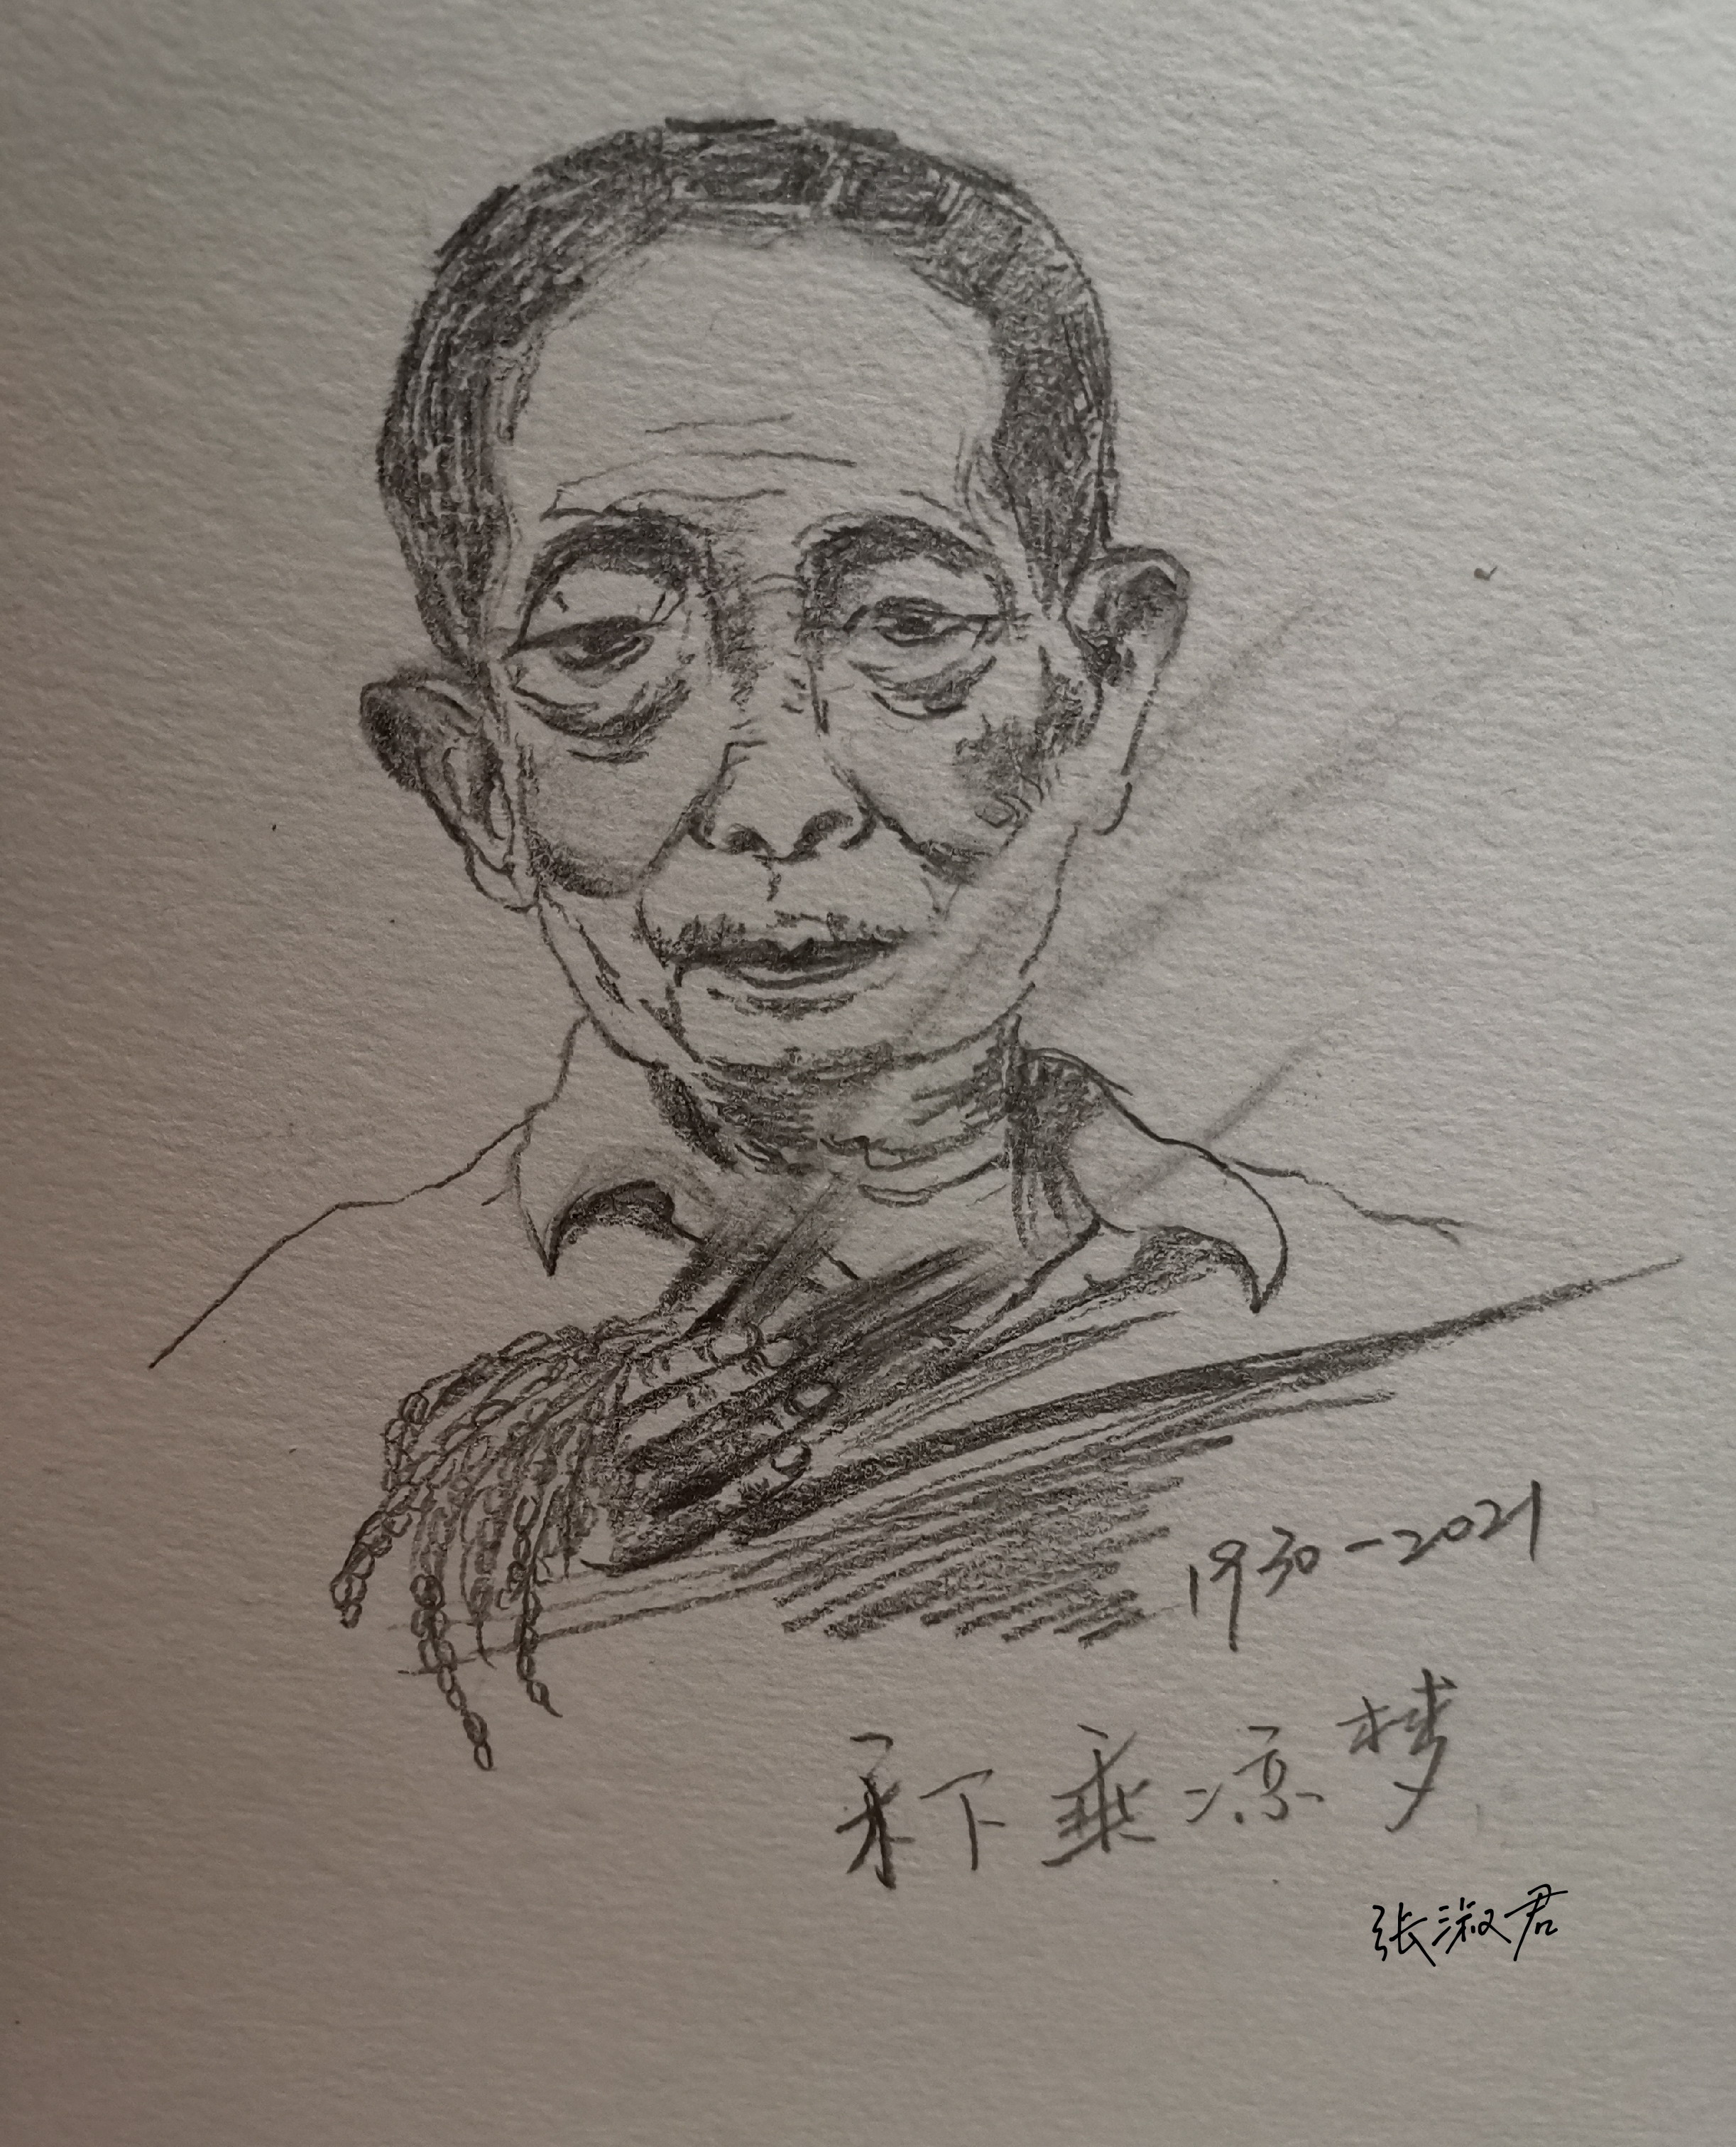 1930-2021
禾下乘凉梦
张淑君